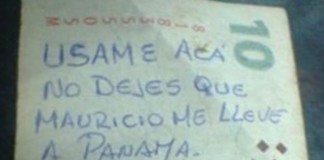 10
USAME ACÁ
NO DEJES QUE
MAURICIO ME LLEVE
A PANAMA.